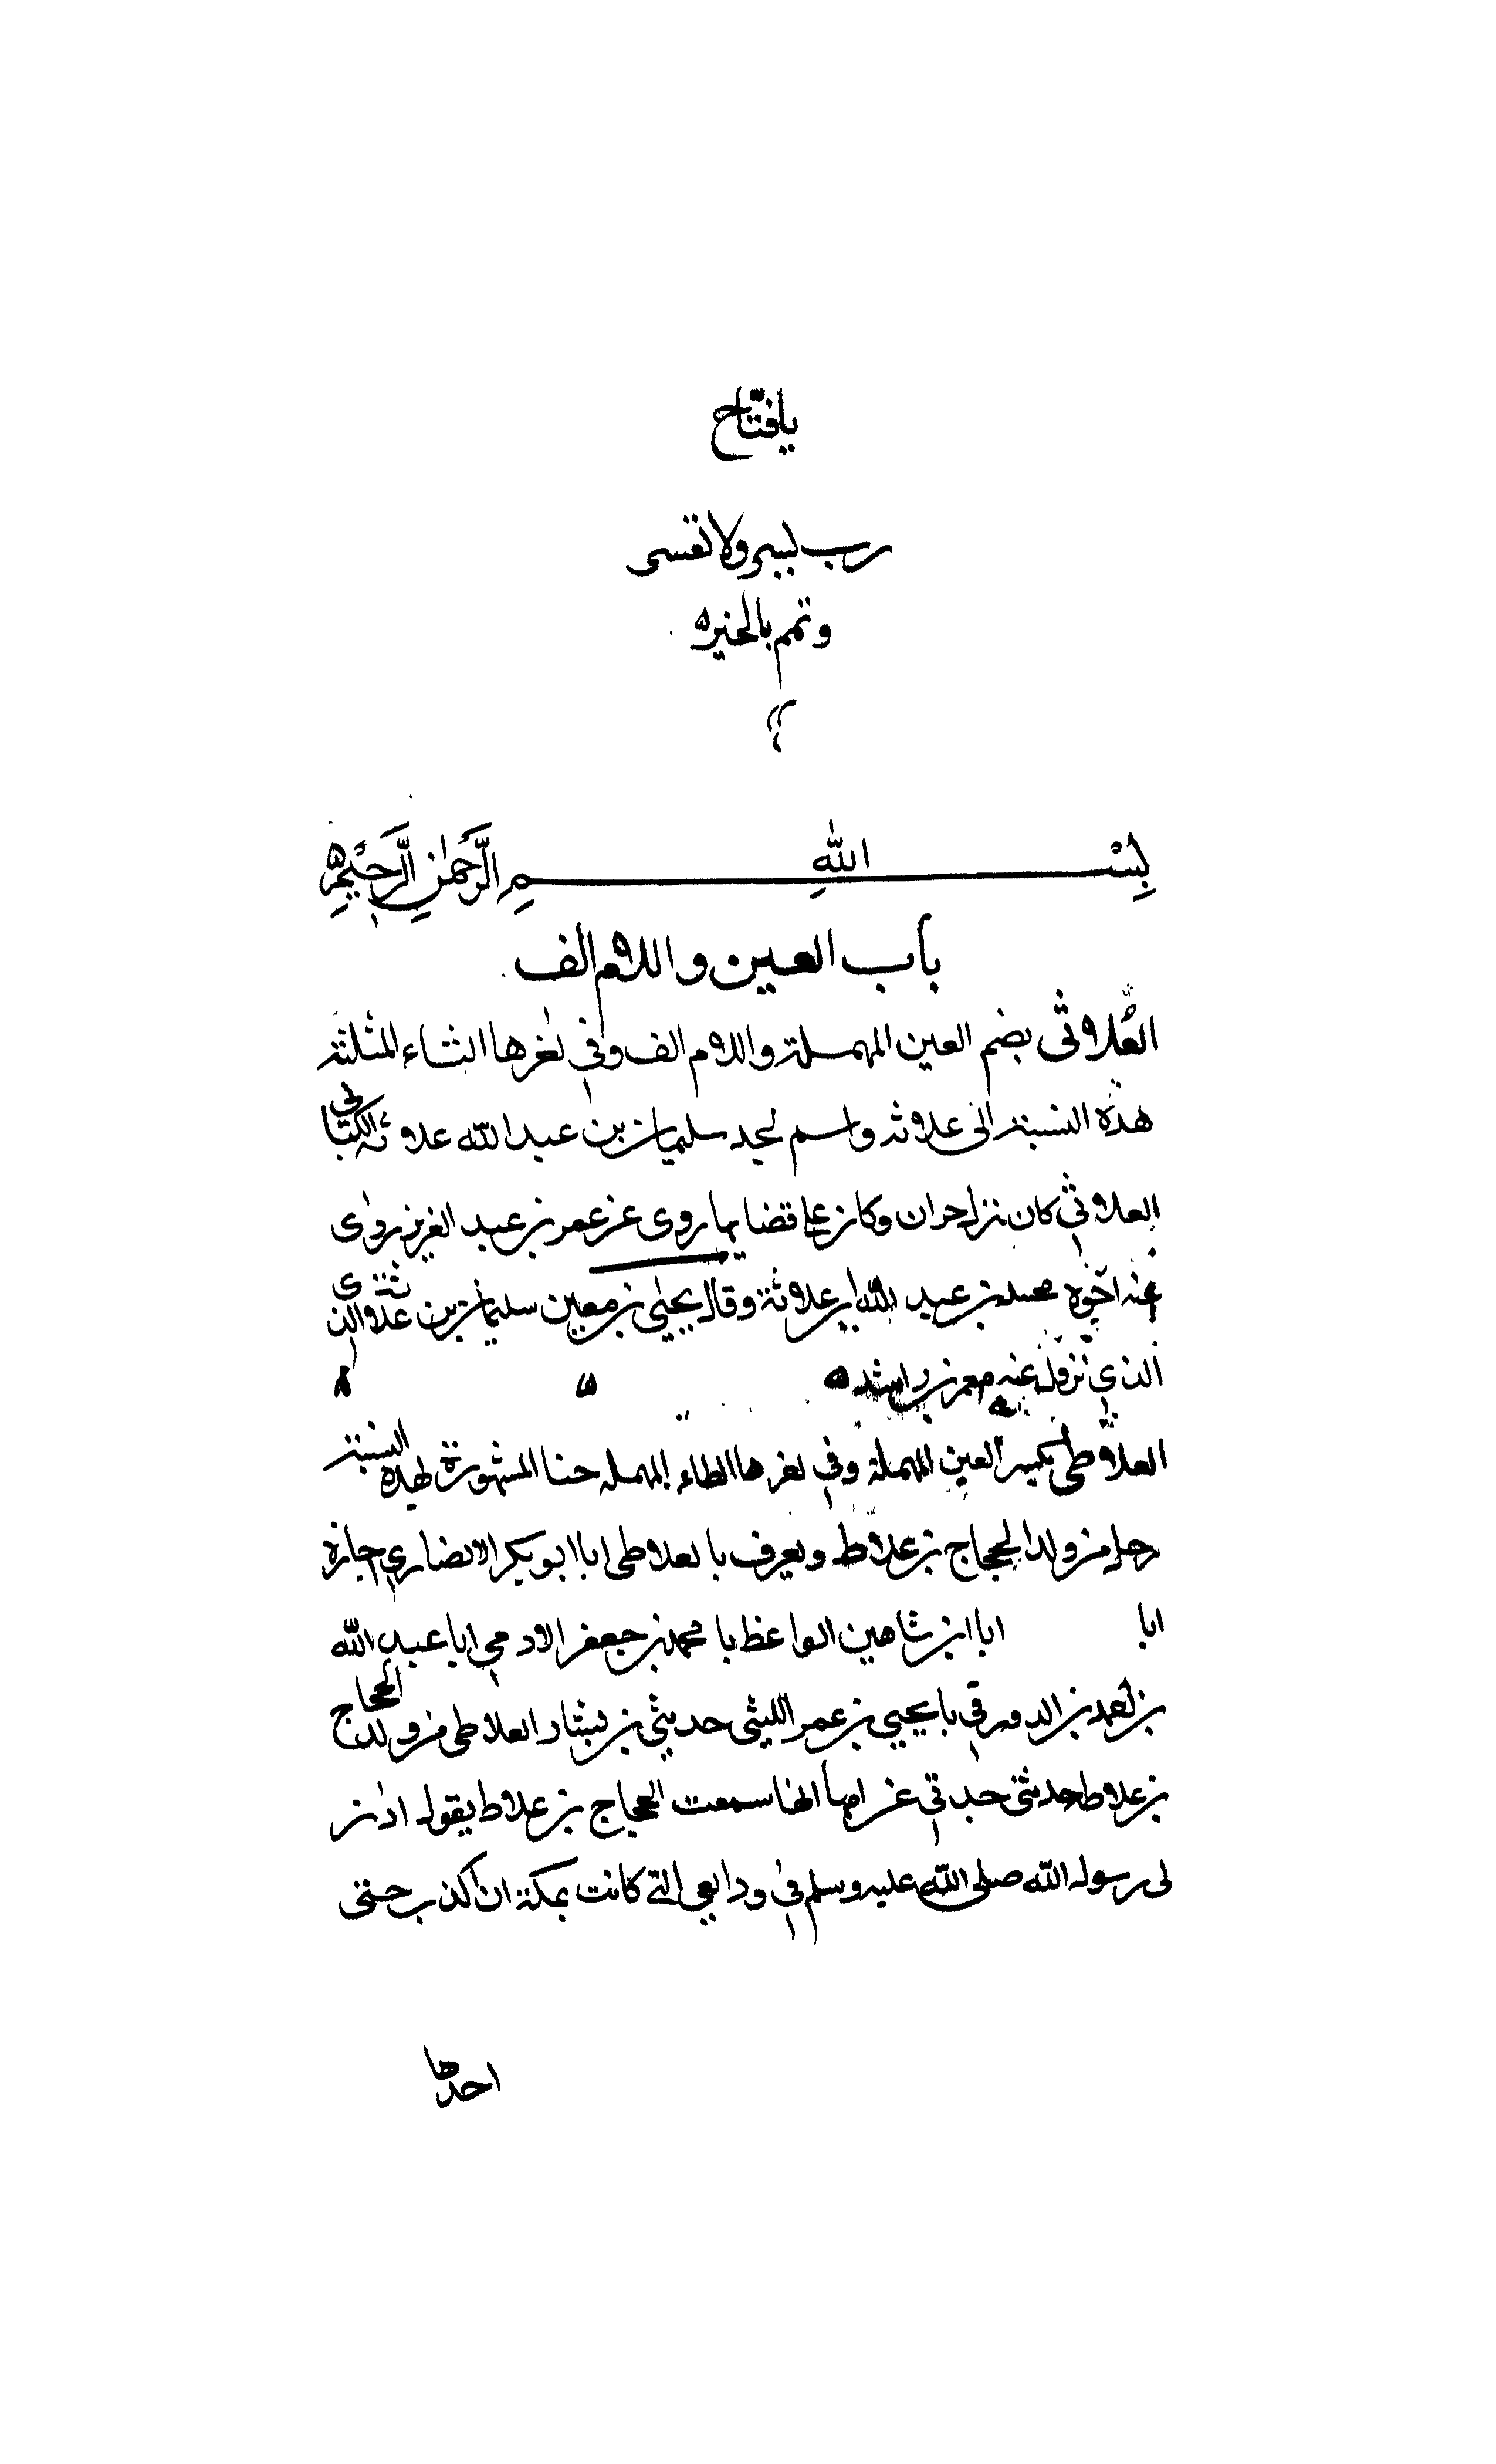 يا فتّاح
رب يسر ولا تعسر
وتمم بالخير
بِسْمِ اللهِ الرَّحْمٰنِ الرَّحِيْمِ
باب العين واللام الف
العُلاثى بضم العين المهملة واللام الف وفي اخرها الثاء المثلثة
هذه النسبة الى علاثة واسم لجد سليمان بن عبد الله علاثة الكتابى
العلاثي كان نزل حران وكان على قضايها روى عن عمر بن عبد العزيز روى
عنه اخوه محمد بن عبد الله بن علاثة وقال يحيى بن معين سليمان بن علاثة
الذي عنه معمر بن راشد
العلاطى بكسر العين المهملة وفي اخرها الطاء المهملة المشهورة لهذه النسبة
رجل من ولد الحجاج بن علاط ويعرف بالعلاطى ابا ابو بكر الانصاري اجازة
ابا ابا ابن شاهين الواعظ با محمد بن جعفر الادمي ابا عبد الله
بن احمد بن الدورقي با يحيى بن عمر الليثى حدثني بن بشار العلاطى من ولد الحجاج
بن علاط حدثتنى جدتي عن امها انها سمعت الحجاج بن علاط يقول اذن
لى رسول الله صلى الله عليه وسلم في ودايعي التي كانت بمكة ان اكذب حتى
احدها